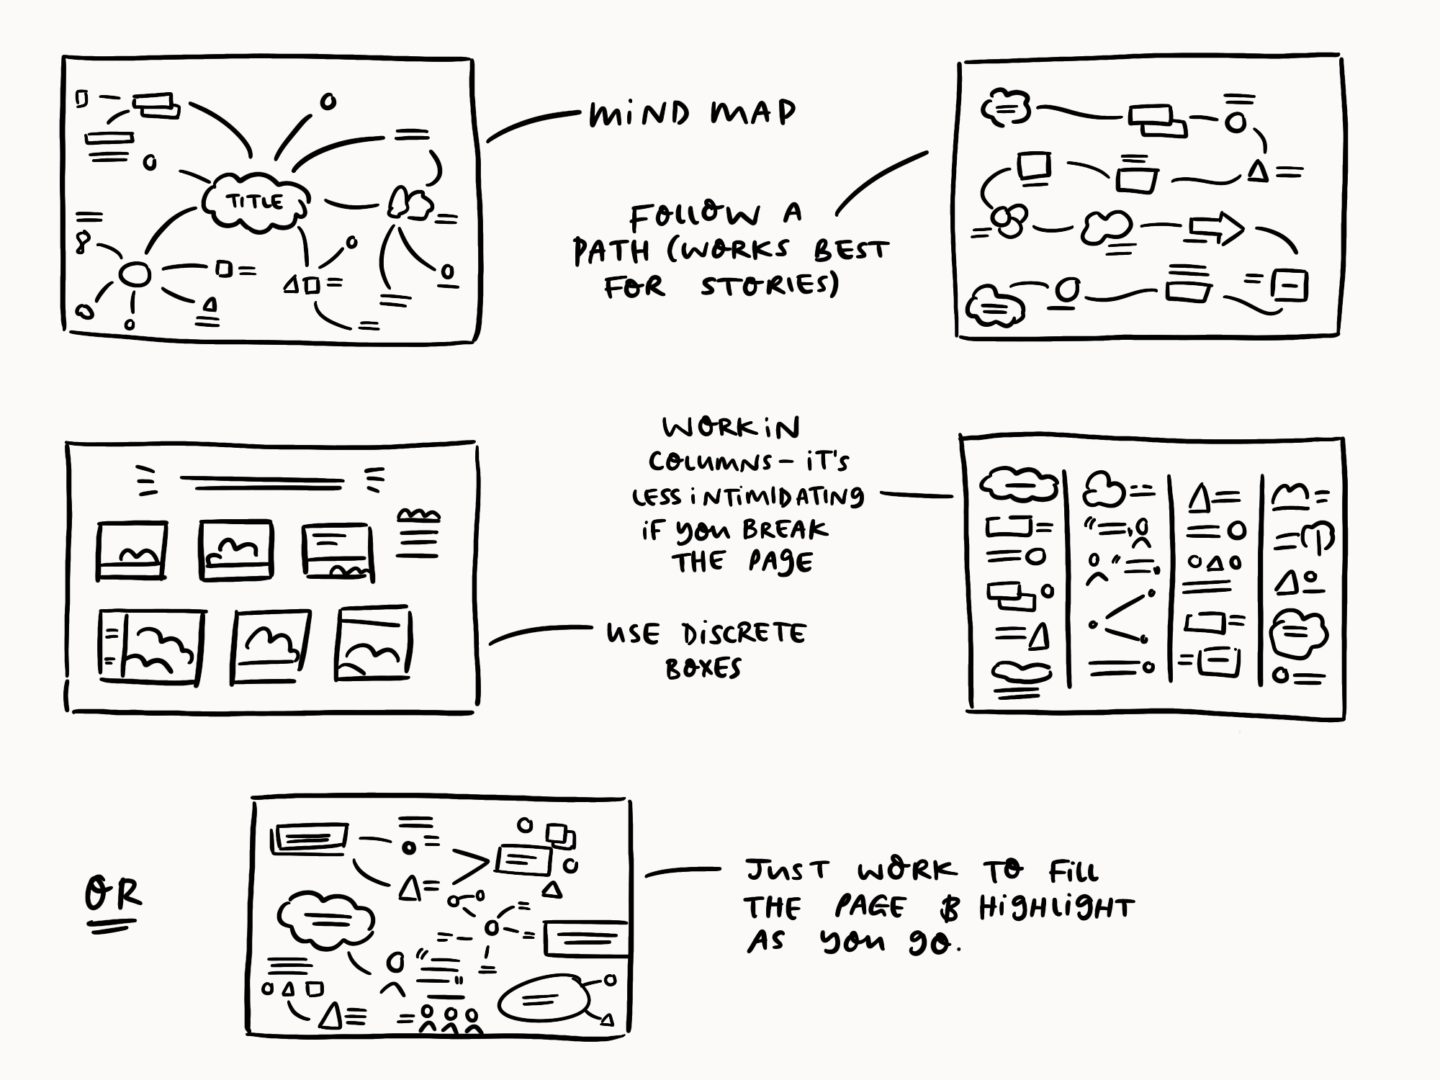 TITLE
MIND MAP
FOLLOW A
PATH (WORKS BEST
FOR STORIES)
WORK IN
COLUMNS - IT'S
LESS INTIMIDATING
IF YOU BREAK
THE PAGE
USE DISCRETE
BOXES
OR
JUST WORK TO FILL
THE PAGE & HIGHLIGHT
AS YOU GO.